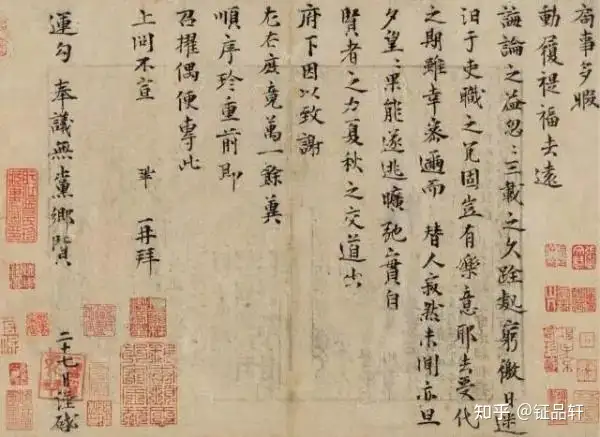 局事多暇
動履禔福去遠
誨論之益忽〻三載之久跧處窮徼日迷
汩于吏職之冗固豈有樂意耶去受代
之期雖幸密邇而替人寂然未聞亦旦
夕望〻果能遂逃曠弛實自
賢者之力夏秋之交道出
府下因以致謝
左右庶竟萬一餘冀
順序珍重前即
召擢偶便專此
上問不宣 鞏再拜
運勾奉議無黨鄉賢 二十七日謹啓
知乎 @钲品轩